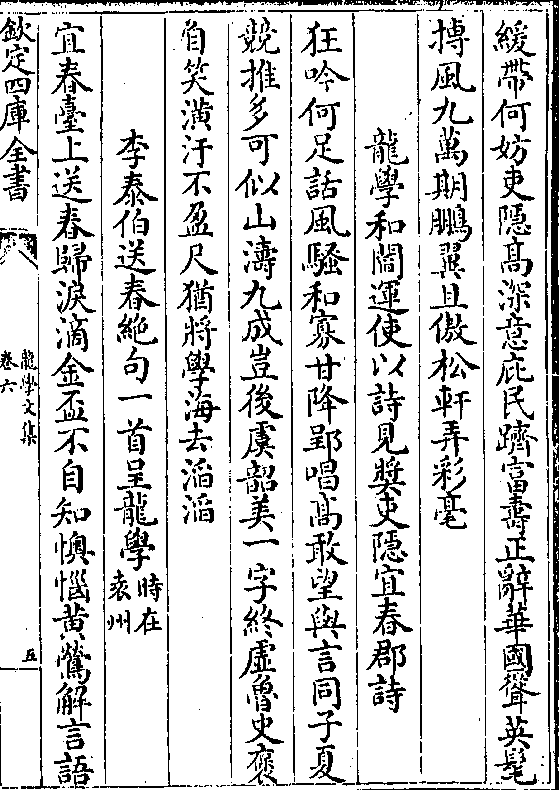 緩帶何妨吏隱髙深意庇民躋富夀正辭華國聳英髦
摶風九萬期鵬翼且傲松軒弄彩毫
龍學和閻運使以詩見奬吏隱宜春郡詩
狂吟何足話風騷和寡甘降郢唱髙敢望與言同子夏
競推多可似山濤九成豈後虞韶美一字終虚魯史褒
自笑潢汙不盈尺猶將學海去滔滔
李泰伯送春絶句一首呈龍學時在袁州
宜春臺上送春歸淚滴金盃不自知懊惱黄鶯解言語
欽定四庫全書
龍學文集
卷六
五